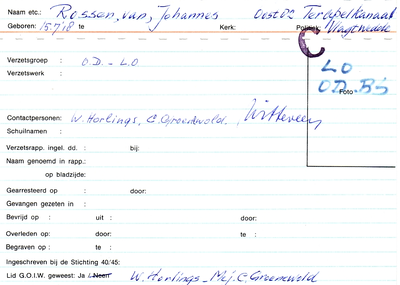 Naam etc.: Rossen, van, Johannes Oost 02 Ter Apelkanaal
Geboren: 15.7.'18 te Kerk: Politiek: Vlagtwedde
C
Verzetsgroep : O.D. - L.O
Verzetswerk :
LO
O.D. BS
Foto
Contactpersonen: W. Horlings, C. Groenewold, Witteveen
Schuilnamen :
Verzetsrapp. ingel. dd. : bij:
Naam genoemd in rapp.:
op bladzijde:
Gearresteerd op : door:
Gevangen gezeten in :
Bevrijd op : uit : door:
Overleden op: door: te :
Begraven op : te :
Ingeschreven bij de Stichting 40/45:
Lid G.O.I.W. geweest: Ja / Neen W. Horlings - Mej. C. Groenewold